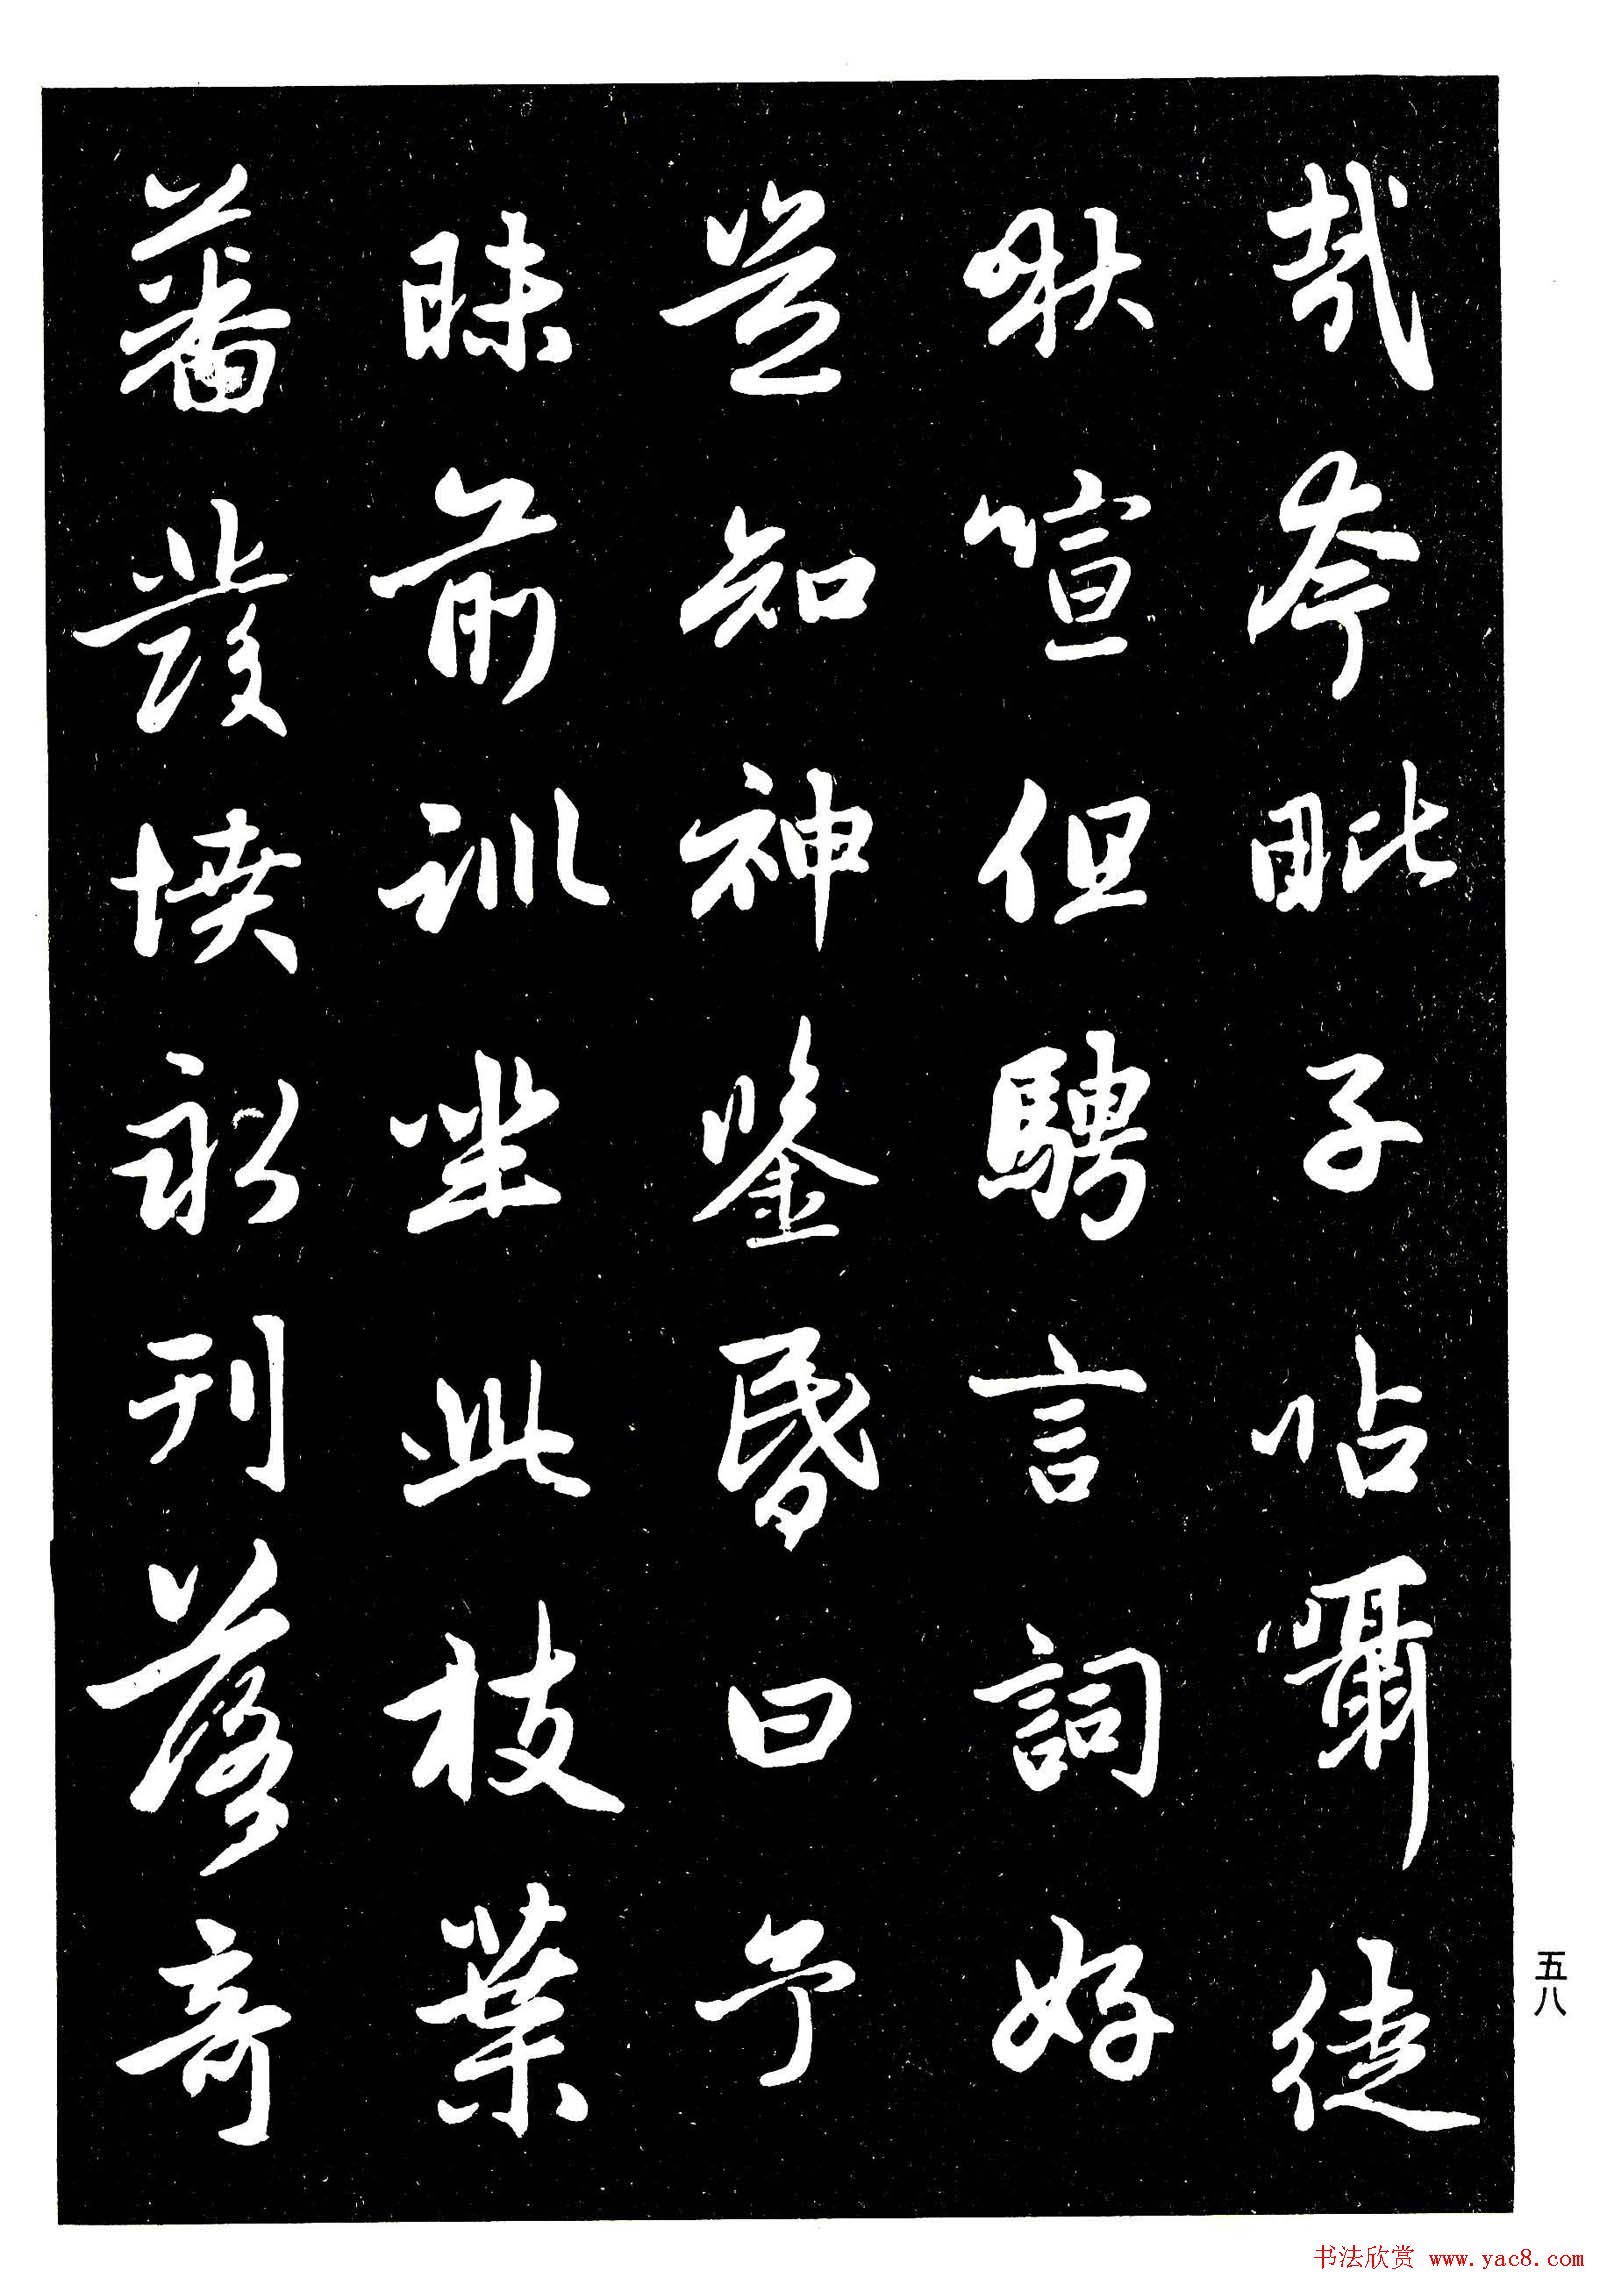 哉夸毗子呫囁徒
啾喧但騁言詞好
豈知神鑒昏曰予
昧前訓坐此枝葉
蕃發憤永刊落奇
五八
书法欣赏 www.yac8.com